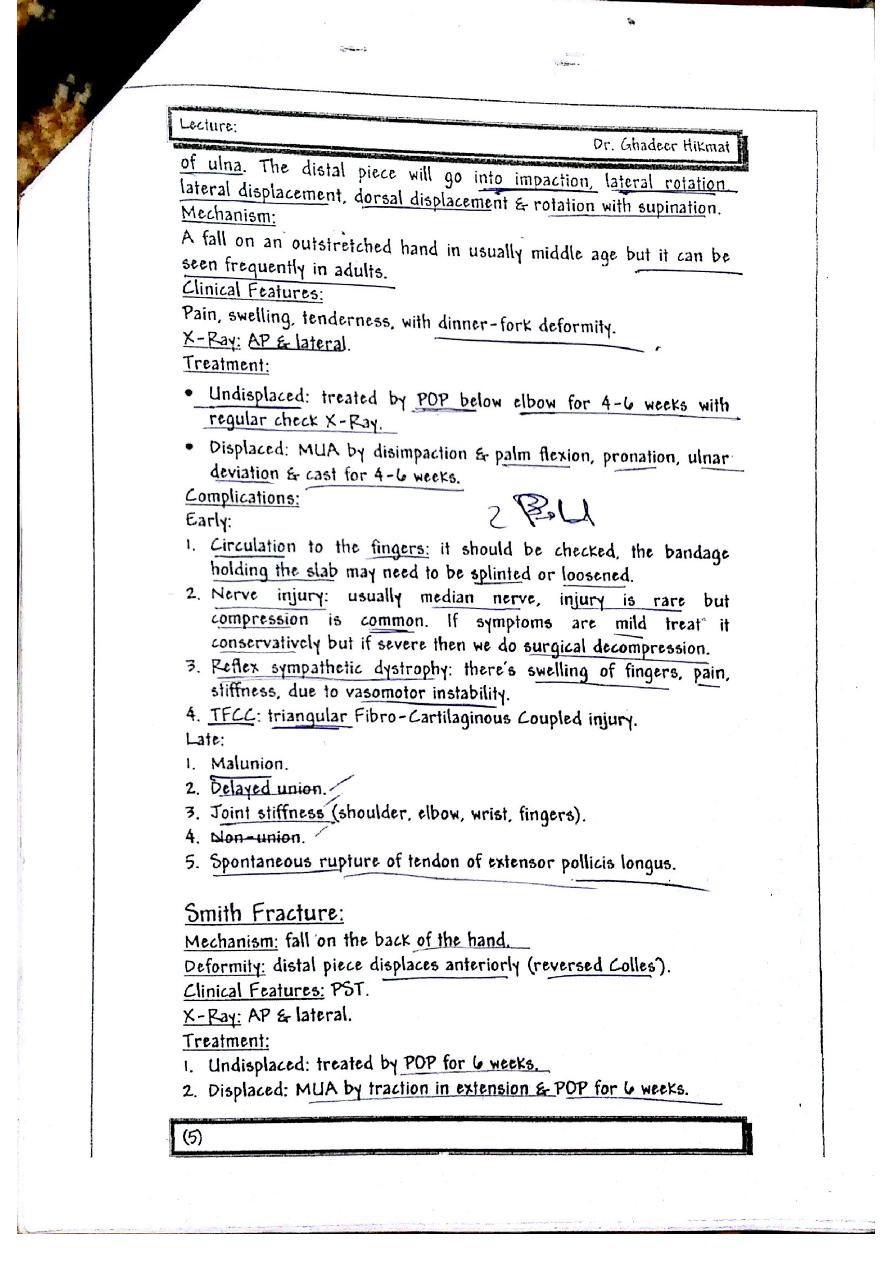 Lecture:
Dr. Ghadeer Hikmat
of ulna. The distal piece will go into impaction, lateral rotation
lateral displacement, dorsal displacement & rotation with supination.
Mechanism:
A fall on an outstretched hand in usually middle age but it can be
seen frequently in adults.
Clinical Features:
Pain, swelling, tenderness, with dinner-fork deformity.
X-Ray: AP & lateral.
Treatment:
• Undisplaced: treated by POP below elbow for 4-6 weeks with
regular check X-Ray.
• Displaced: MUA by disimpaction & palm flexion, pronation, ulnar
deviation & cast for 4-6 weeks.
Complications:
Early:
1. Circulation to the fingers: it should be checked, the bandage
holding the slab may need to be splinted or loosened.
2. Nerve injury: usually median nerve, injury is rare but
compression is common. If symptoms are mild treat it
conservatively but if severe then we do surgical decompression.
3. Reflex sympathetic dystrophy: there's swelling of fingers, pain,
stiffness, due to vasomotor instability.
4. TFCC: triangular Fibro-Cartilaginous Coupled injury.
Late:
1. Malunion.
2. Delayed union.
3. Joint stiffness (shoulder, elbow, wrist, fingers).
4. Non-union.
5. Spontaneous rupture of tendon of extensor pollicis longus.
Smith Fracture:
Mechanism: fall on the back of the hand.
Deformity: distal piece displaces anteriorly (reversed Colles').
Clinical Features: PST.
X-Ray: AP & lateral.
Treatment:
1. Undisplaced: treated by POP for 6 weeks.
2. Displaced: MUA by traction in extension & POP for 6 weeks.
(5)